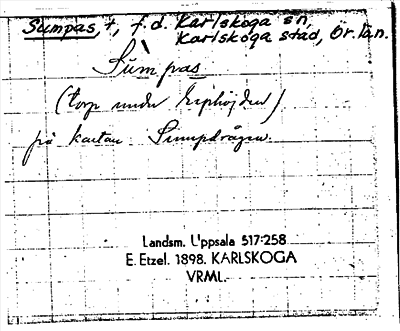 Sumpas, t, f.d. Karlskoga sn,
Karlskoga stad, Ör. län.
Sùmpas
(torp under Lephöjden)
på kartan Sumpdrågen.
Landsm. Uppsala 517:258
E. Etzel. 1898. KARLSKOGA
VRML.